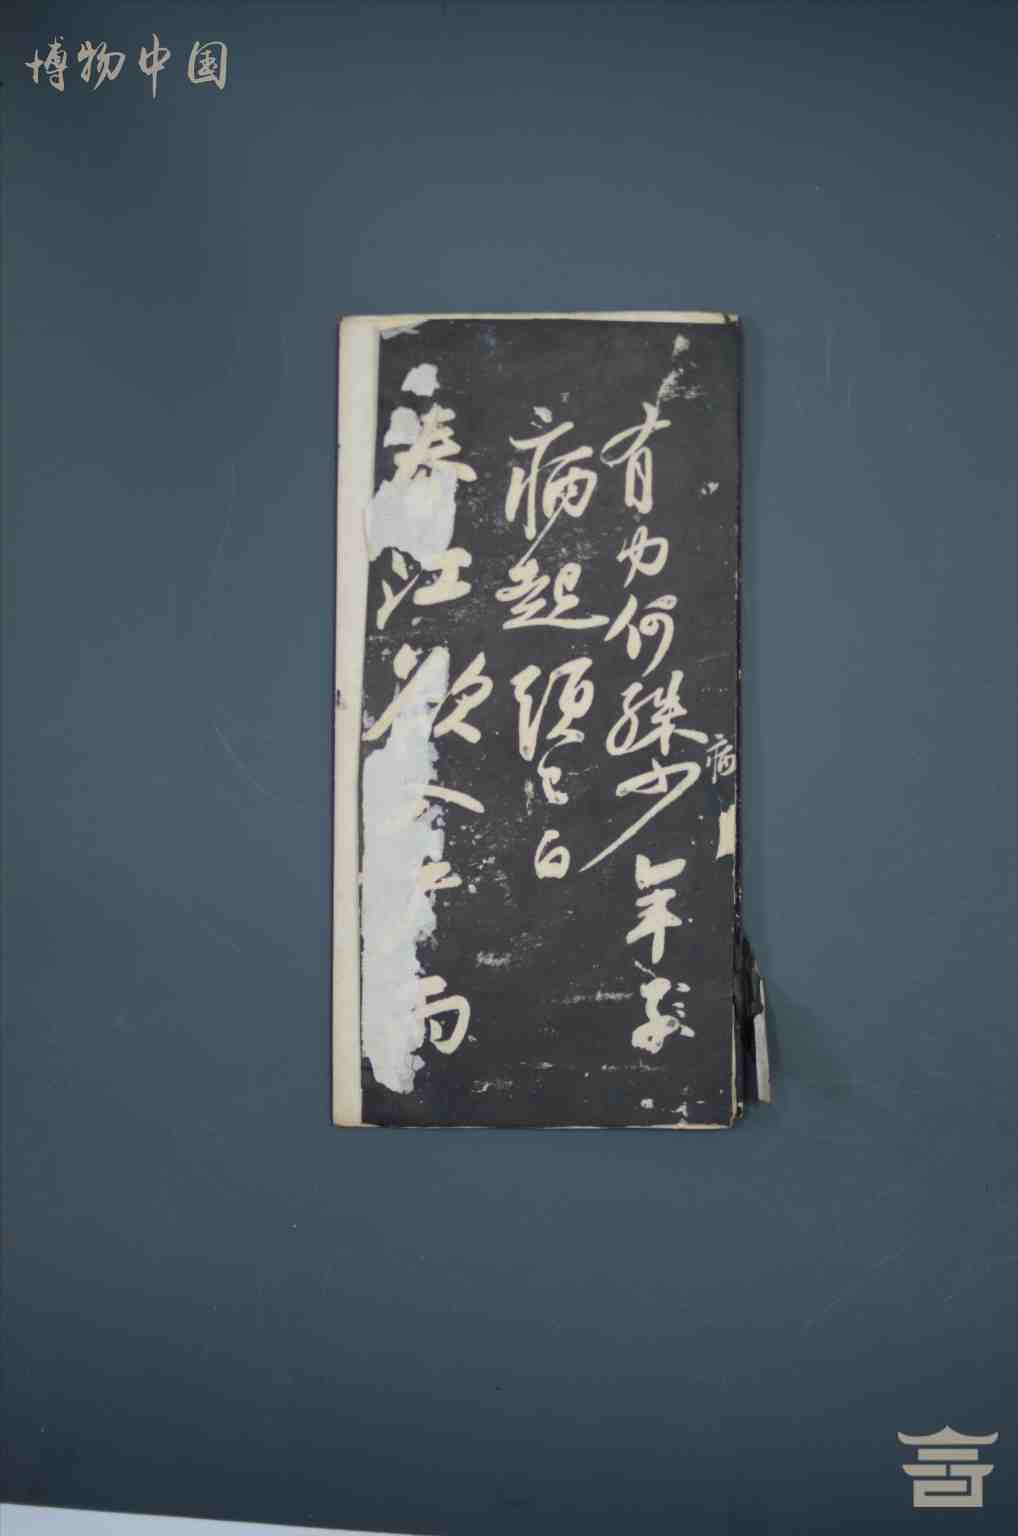 博物中国
有力何殊少年子
病
病起頭已白
春江欲入户雨